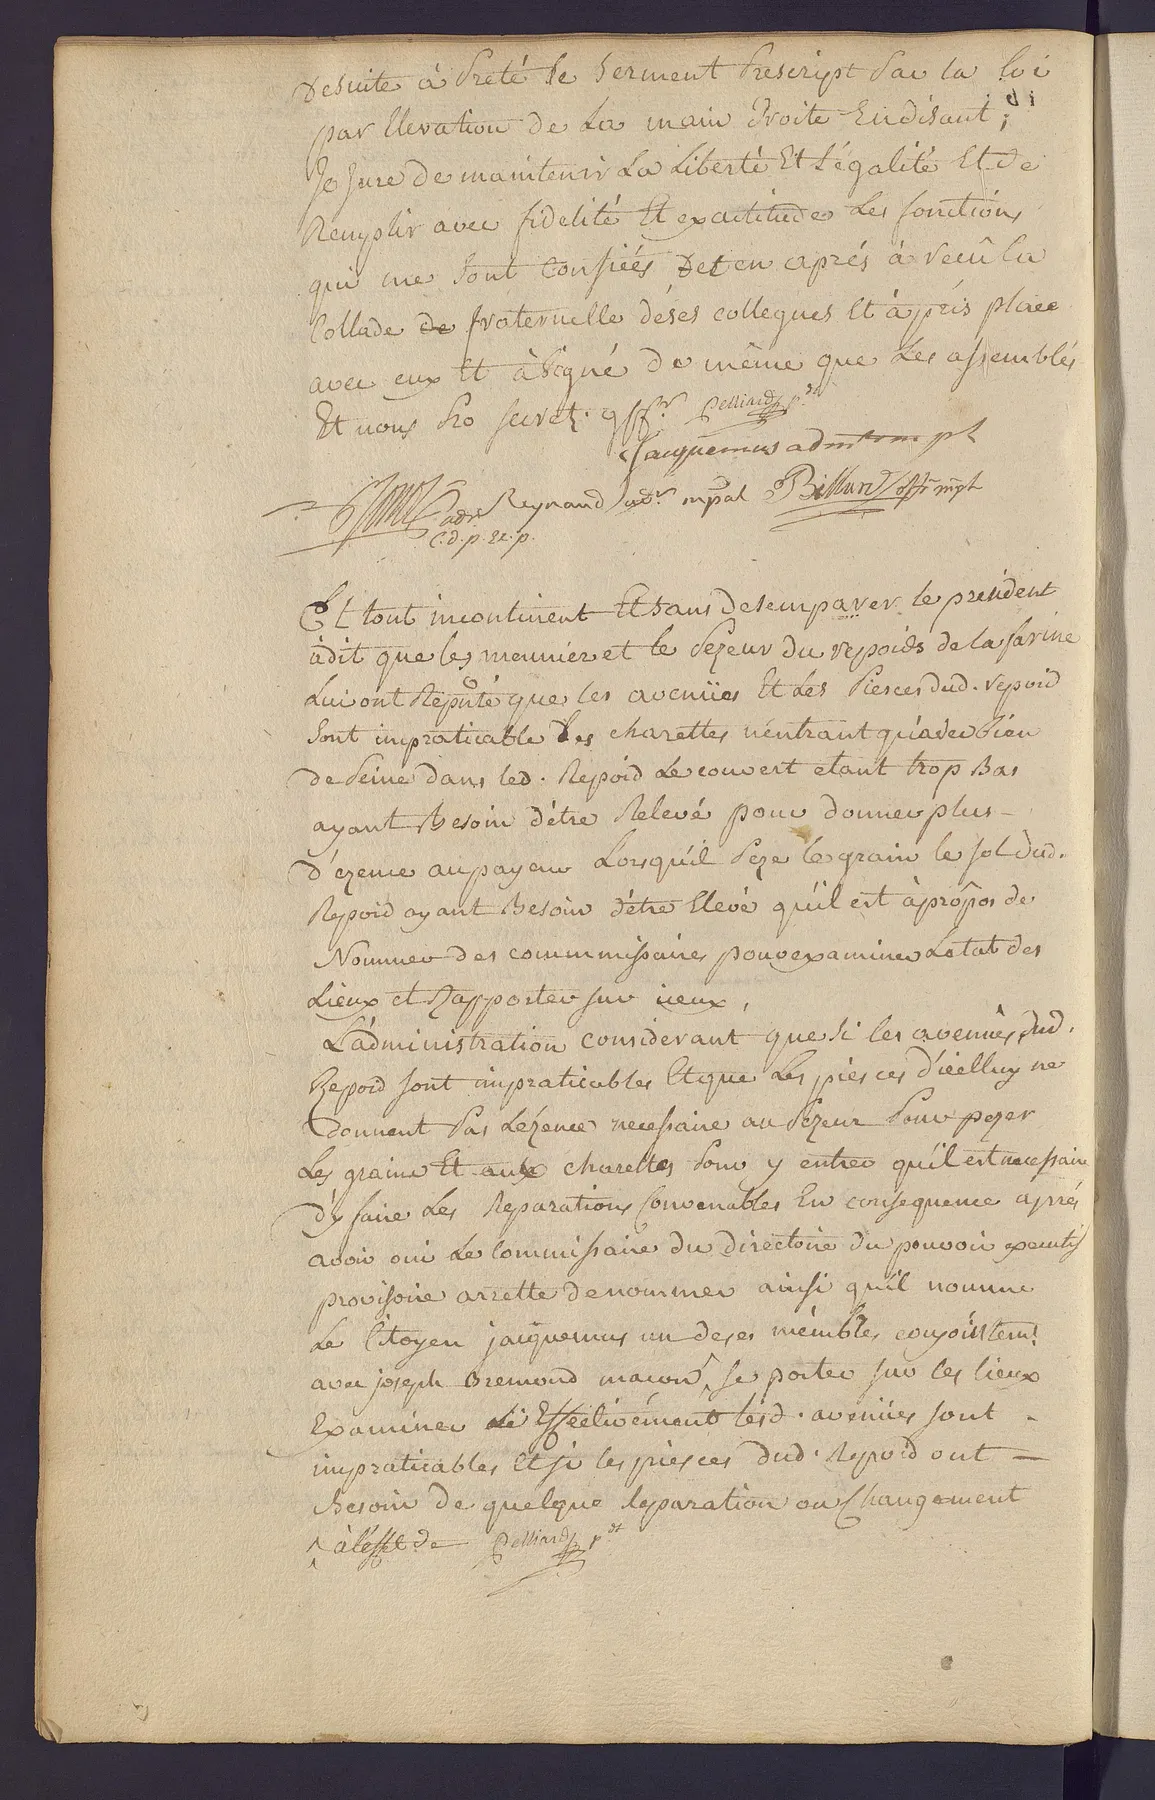 Desuite à Preté le serment Prescript Par la loi
par Elevation de La main Droite Endisant ;
Je Jure de maintenir La Liberté Et L'égalité Et De
Remplir avec fidelité Et exactitude Les fonctions
qui me sont Confiées Et en aprés à recû la
Collade de fraternelle déses collegues Et à pris place
avec eux Et à signé de même que Les assemblés
Et nous Pro secret. Pelliard p.dt
Jacquemus adm
Reynaud mpal Billard
C. d. p. ex. p.
Et tout incontinent Et sans desemparer le president
àdit que les meunier et le Pezeur du repoids de la farine
Lui ont Reputé que les avenües Et Les Piesces dud. repoid
sont impraticable Les charettes n'entrant qu'avec bien
de Peine dans led. Repoid Le couvert etant trop Bas
ayant Besoin d'être Relevé pour donner plus
d'ezence au payeur Lorsqu'il Peze le grain le sol dud.
Repoid ayant Besoin d'être Elevé qu'il est àprôpos de
Nommer des commmissaires pour examiner Letat des
Lieux et Rapporter sur iceux,
L'administration considerant que si les avenües dud.
Repoid sont impraticables Et que Les piesces d'icelluy ne
donnent Pas L'ézence necessaire au Pezeur Pour pezer
Les grains Et aux charettes Pour y entrer qu'il est necessaire
d'y faire Les Reparations Convenables En consequence aprés
avoir oui Le Commissaire du directoire du pouvoir executif
provisoire arrette de nommer ainsi qu'il nomme
Le Citoyen jacquemus un de ses mémbres conjointem.t
avec joseph Bremond macon ^ se porter sur les lieux
Examiner si Effectivément lesd. avenües sont
impraticables Et si les piesces dud. Repoid ont
Besoin de quelque Reparation ou Changement
^ à l'effet de Pelliard p.dt